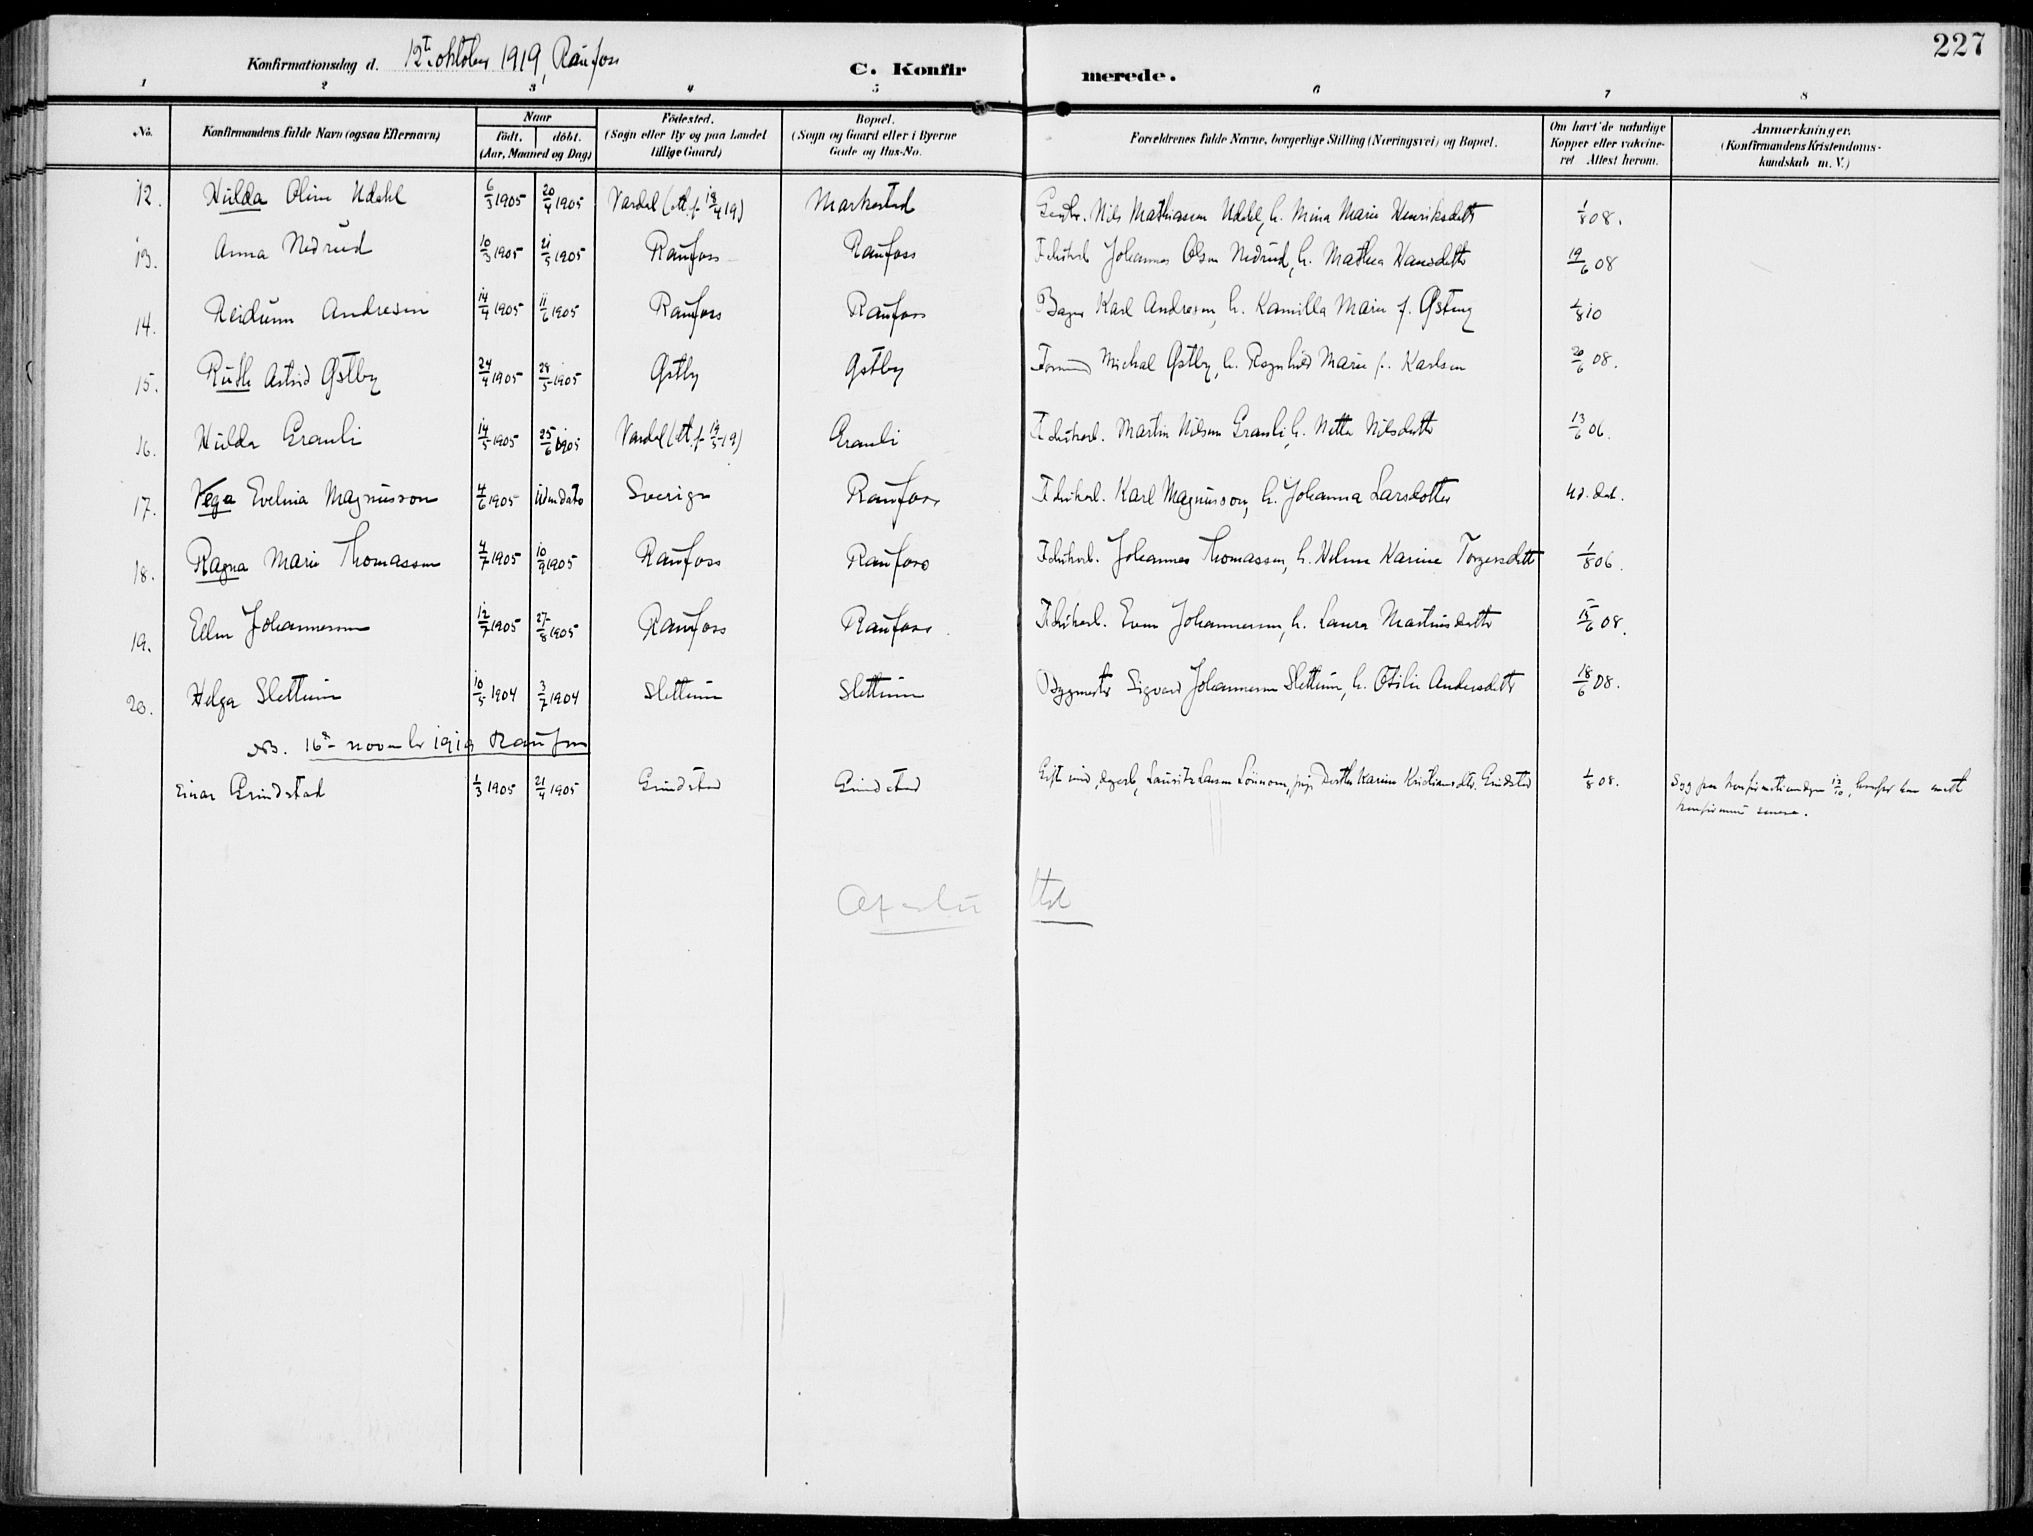 227
Konfirmationsdag d. 12te oktober 1919, Raufoss
C. Konfirmerede.
1 2 3 4 5 6 7 8
No. | Konfirmandens fulde Navn (ogsaa Efternavn) | Naar födt. döbt. (Aar, Maaned og Dag) | Födested. (Sogn eller By og paa Landet tillige Gaard) | Bopæl. (Sogn og Gaard eller i Byerne Gade og Hus-No. | Forældrenes fulde Navne, borgerlige Stilling (Næringsvei) og Bopæl. | Om havt de naturlige Kopper eller vakcineret Attest herom. | Anmærkninger. (Konfirmandens Kristendomskundskab m. V.)
12. Hulda Oline Udahl 6/3 1905 20/4 1905 Vardal (att. f. 18/4 19) Markestad Nils Mathiassen Udahl, h. Mina Marie Henriksdatter 1/8 08.
13. Anna Nedrud 10/3 1905 21/5 1905 Raufoss Raufoss Johannes Olsen Nedrud, h. Mathea Hansdatter 19/6 08
14. Reidunn Andresen 14/4 1905 11/6 1905 Raufoss Raufoss Bager Karl Andresen, h. Kamilla Marie f. Østeng 1/8 10
15. Ruth Astrid Østby 24/4 1905 28/5 1905 Østby Østby Michal Østby, h. Ragnhild Marie f. Karlsen 20/6 08.
16. Hulda Granli 14/5 1905 25/6 1905 Vardal (att. f. 19/5 19) Granli Martin Nilsen Granli, h. Netta Nilsdatter 13/6 06.
17. Vega Evelina Magnusson 4/6 1905 Uden dato Sverige Raufoss Karl Magnusson, h. Johanna Larsdotter Ud. dat.
18. Ragna Marie Thomassen 4/7 1905 10/9 1905 Raufoss Raufoss Johannes Thomassen, h. Helene Karine Torgersdatter 1/8 06.
19. Johannessen 12/7 1905 27/8 1905 Raufoss Raufoss Even Johannessen, h. Laura Martinsdatter 15/6 08.
20. Helga Slettum 10/5 1904 3/7 1904 Slettum Slettum Bygmester Sigvard Johannessen Slettum, h. Otilie Andersdatter 18/6 08.
16de november 1919 Raufoss
Einar Grindstad 1/3 1905 21/4 1905 Grindstad Grindstad Gift Lauritz Larsen pige Karine Kristiansdtr. Grindstad 1/8 08. Syg paa konfirmationsdagen 12/10, hvorfor han maatte
konfirmeres senere.
Afsluttet